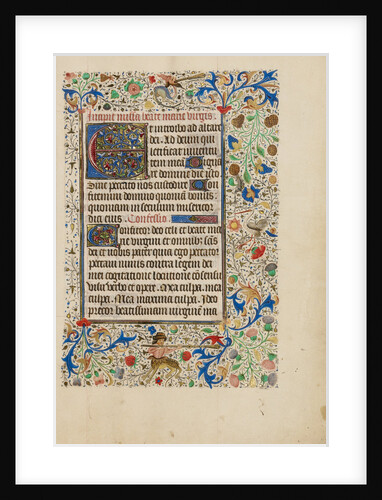 Incipit missa beate marie virgīs.
Et introibo ad altare
dei. Ad deum qui
letificat iuuentu
tem meā Dignā
re domine die isto.
Sine peccato nos custodire Con
fitemini domino quoniam bonus.
quoniam in seculum misericor
dia eius. Confessio.
Confiteor deo celi et beate ma
rie virgini et omnibz scīs
dei et vobis pater quia ego peccator
peccaui nimis contra legem dei
mei cogitatione locutione cōsensu
visu verbo et opere. Mea culpa. mea
culpa. Mea maxima culpa. Ideo
precor beatissimam virginē ma